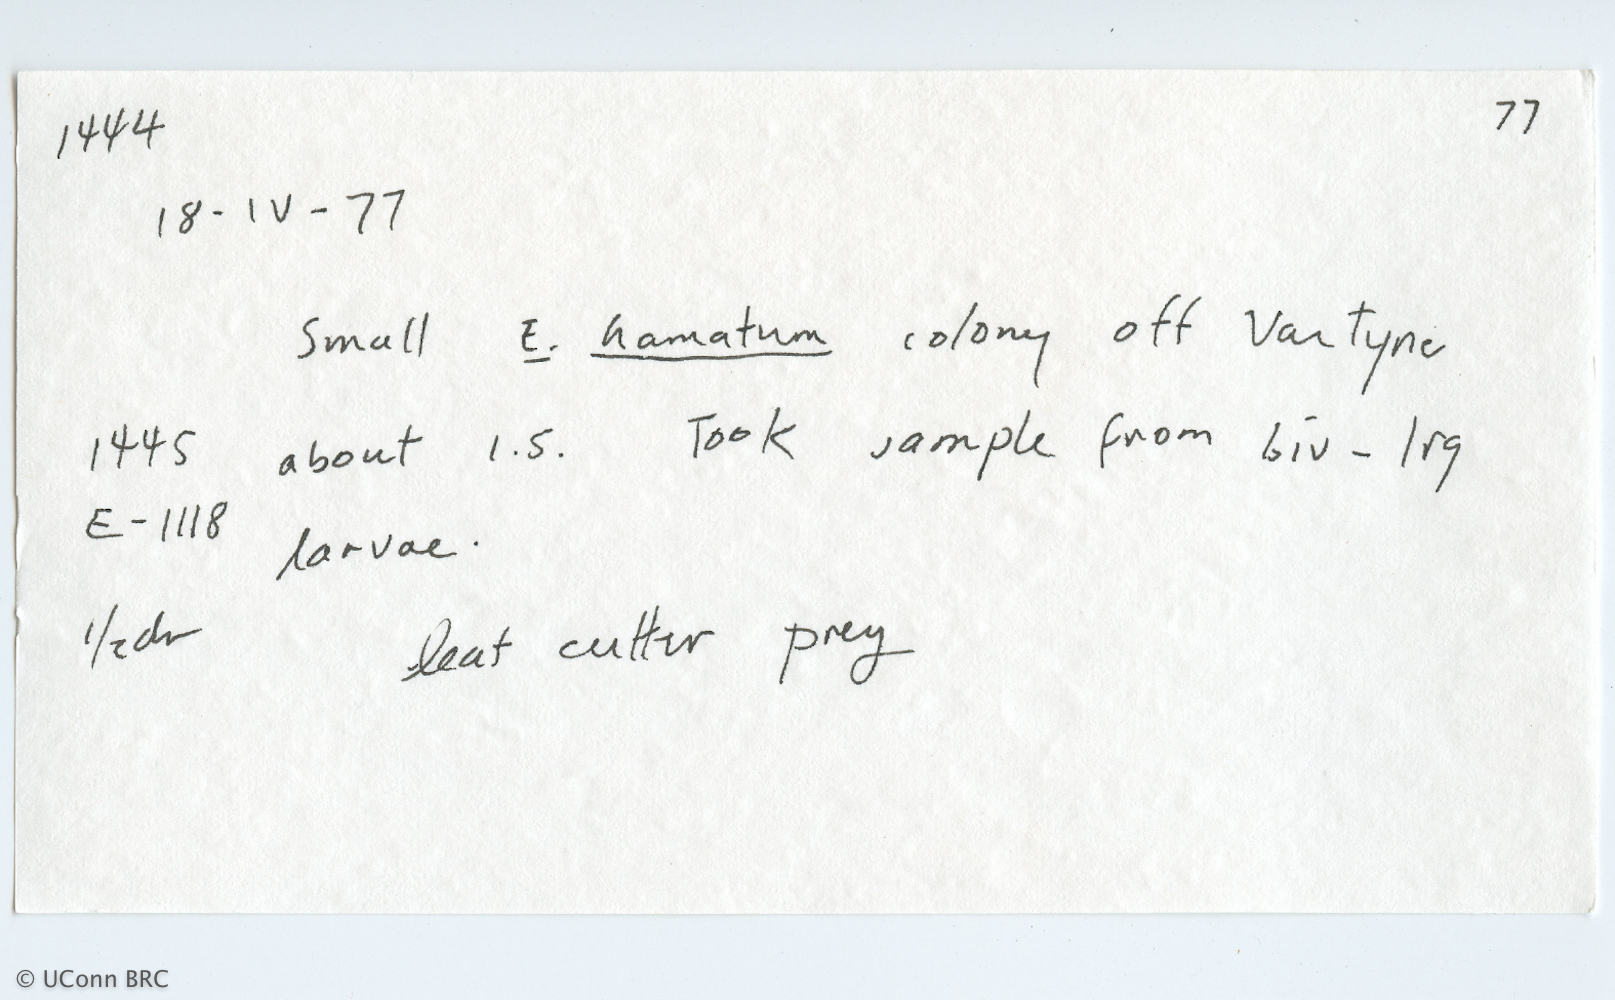 1444 77
18-IV-77
Small E. hamatum colony off Van Tyne
1445 about 1.5. Took sample from biv - lrg
E-1118 larvae.
1/2dr leaf cutter prey
© UConn BRC